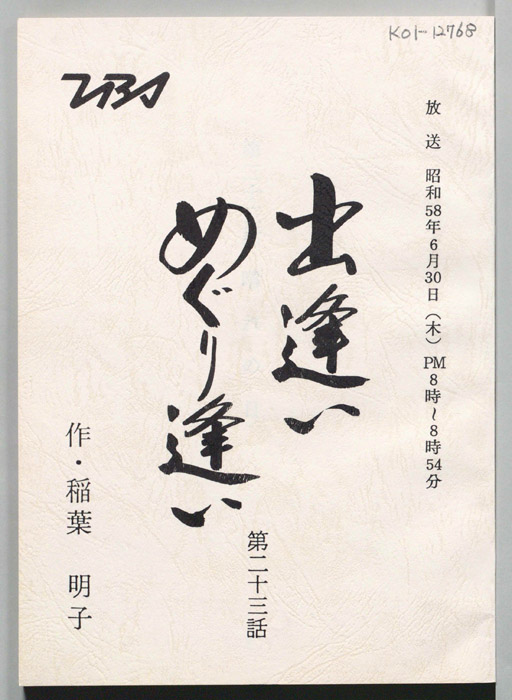 K01-12768
TBS
放送 昭和58年6月30日（木）PM8時〜8時54分
出逢い
めぐり逢い
第二十三話
作・稲葉 明子